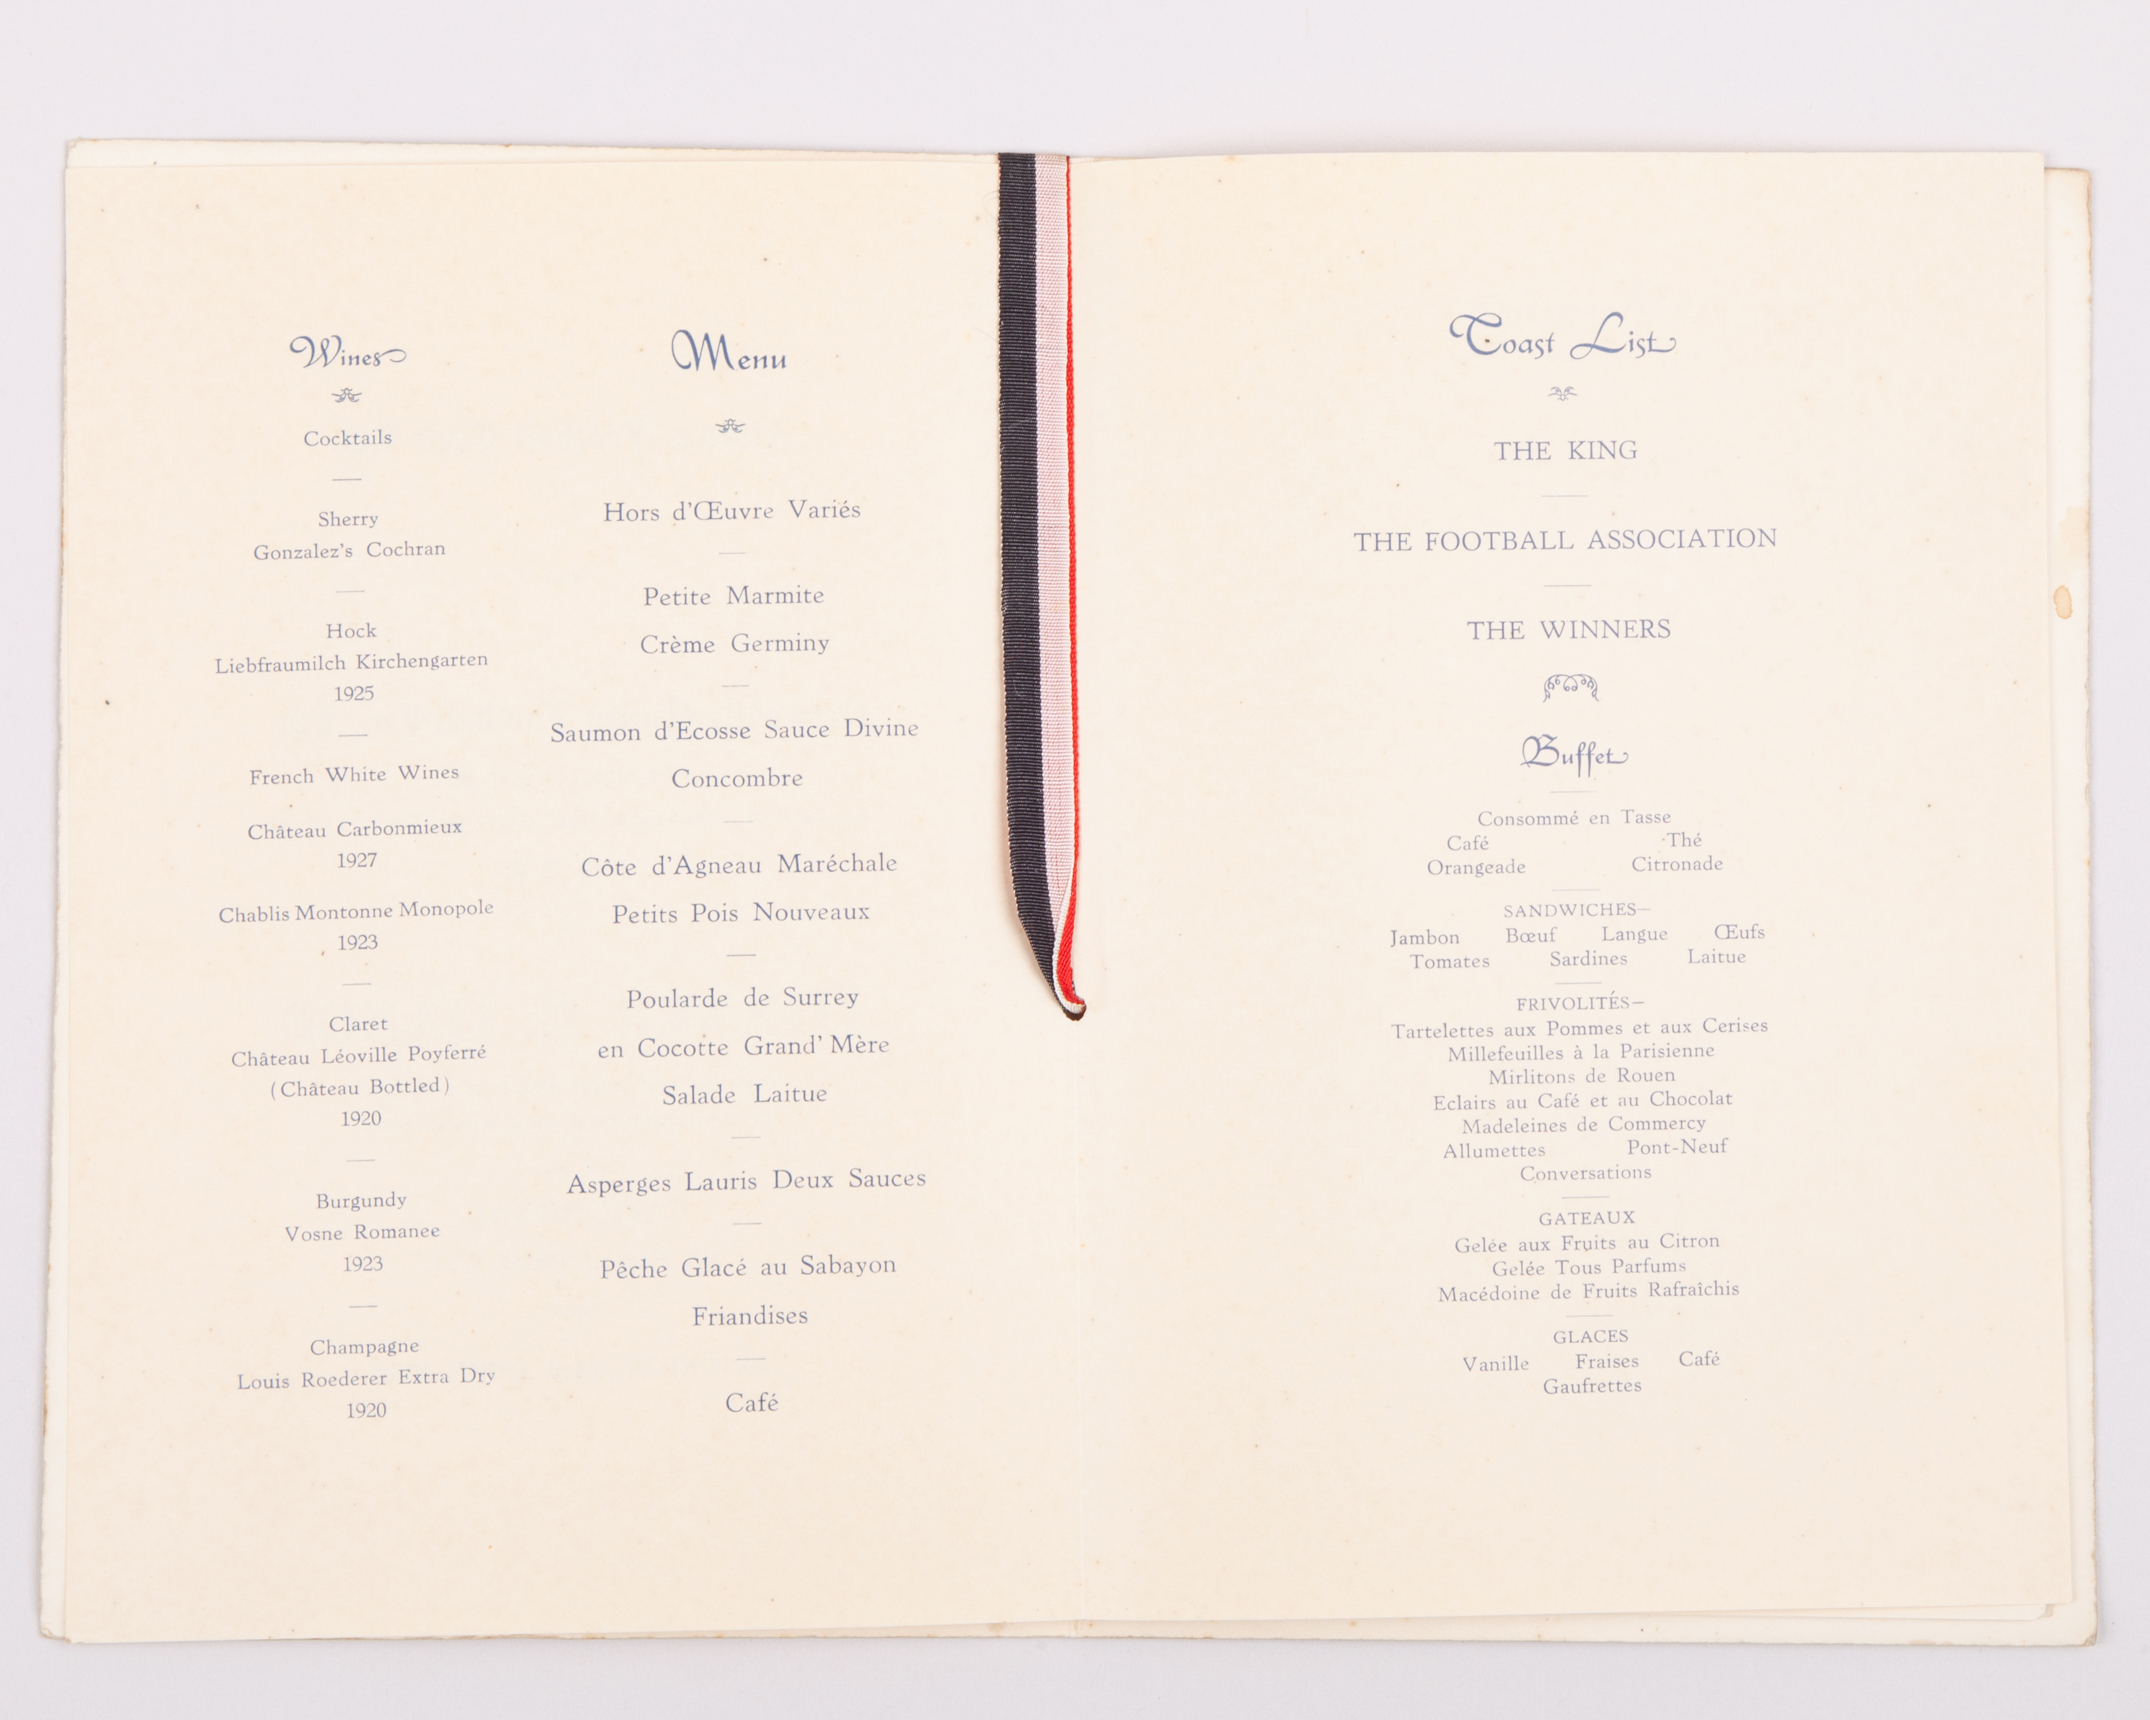 Wines
Cocktails
Sherry
Gonzalez's Cochran
Hock
Liebfraumilch Kirchengarten
1925
French White Wines
Château Carbonmieux
1927
Chablis Montonne Monopole
1923
Claret
Château Léoville Poyferré
(Château Bottled)
1920
Burgundy
Vosne Romanee
1923
Champagne
Louis Roederer Extra Dry
1920
Menu
Hors d'Œuvre Variés
Petite Marmite
Crème Germiny
Saumon d'Ecosse Sauce Divine
Concombre
Côte d'Agneau Maréchale
Petits Pois Nouveaux
Poularde de Surrey
en Cocotte Grand' Mère
Salade Laitue
Asperges Lauris Deux Sauces
Pêche Glacé au Sabayon
Friandises
Café
Toast List
THE KING
THE FOOTBALL ASSOCIATION
THE WINNERS
Buffet
Consommé en Tasse
Café Thé
Orangeade Citronade
SANDWICHES—
Jambon Bœuf Langue Œufs
Tomates Sardines Laitue
FRIVOLITÉS—
Tartelettes aux Pommes et aux Cerises
Millefeuilles à la Parisienne
Mirlitons de Rouen
Eclairs au Café et au Chocolat
Madeleines de Commercy
Allumettes Pont-Neuf
Conversations
GATEAUX
Gelée aux Fruits au Citron
Gelée Tous Parfums
Macédoine de Fruits Rafraîchis
GLACES
Vanille Fraises Café
Gaufrettes